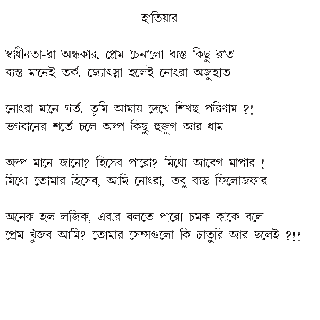 হাতিয়ার
স্বাধীনতা-রা অন্ধকার, প্রেম চেনালো ব্যস্ত কিছু রাত
ব্যস্ত মানেই তর্ক, জ্যোৎস্না হলেই নোংরা অজুহাত
নোংরা মানে গর্ত, তুমি আমায় দেখে শিখছ পরিণাম ?!
ভগবানের শর্তে চলে অল্প কিছু হুজুগ আর ধাম
অল্প মানে জানো? হিসেব পারো? মিথ্যে আবেগ মাপার !
মিথ্যে তোমার হিসেব, আমি নোংরা, তবু ব্যস্ত ফিলোজফার
অনেক হল লজিক, এবার বলতে পারো চমক কাকে বলে
প্রেম খুঁজব আমি? তোমার সেন্সগুলো কি চাতুরি আর ছলেই ?!!